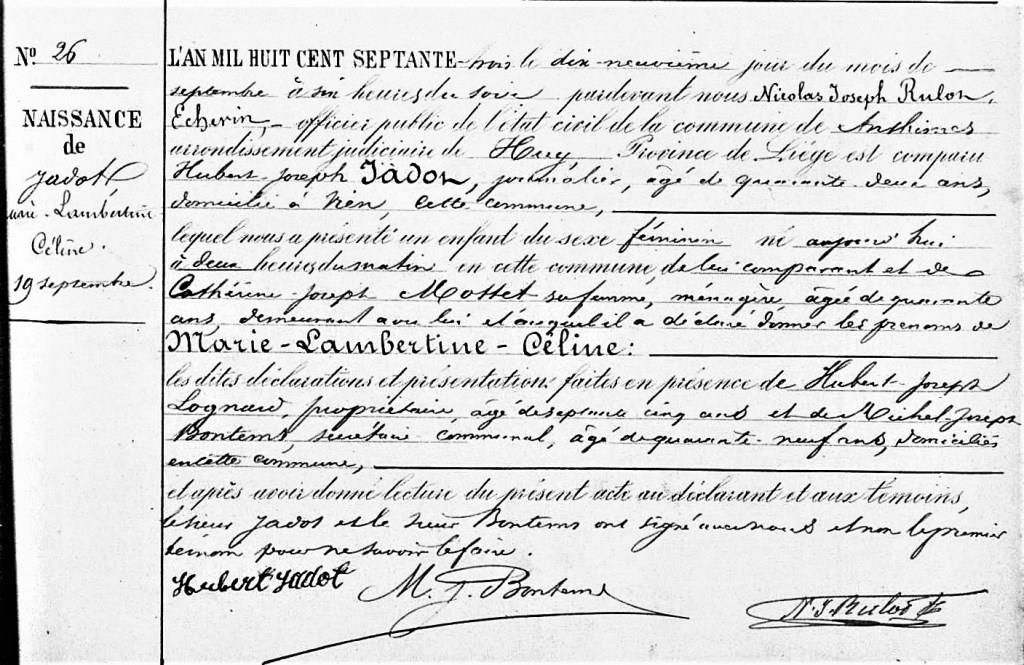 N° 26
NAISSANCE
de
Jadot,
Marie-Lambertine
Céline.
19 septembre.
L'AN MIL HUIT CENT SEPTANTE-trois le dix-neuvième jour du mois de
septembre à six heures du soir pardevant nous Nicolas Joseph Rulot,
Echevin, officier public de l'état civil de la commune de Anthisnes
arrondissement judiciaire de Huy, Province de Liége est comparu
Hubert-Joseph JADOT, journalier, âgé de quarante deux ans,
domicilié à Vien, cette commune,
lequel nous a présenté un enfant du sexe féminin né aujourd'hui
à deux heures du matin en cette commune, de lui comparant et de
Cathérine-Joseph Mottet sa femme, ménagère âgée de quarante
ans, demeurant avec lui et auquel il a déclaré donner les prénoms de
Marie-Lambertine-Céline:
les dites déclarations et présentations faites en présence de Hubert-Joseph
Lognard, propriétaire, âgé de septante cinq ans et de Michel-Joseph
Bontems, secrétaire communal, âgé de quarante-neuf ans, domiciliés
en cette commune,
et après avoir donné lecture du présent acte au déclarant et aux témoins,
le sieur Jadot et le sieur Bontems ont signé avec nous et non le premier
témoin pour ne savoir le faire.
Hubert Jadot
M. J. Bontems
N. J. Rulot